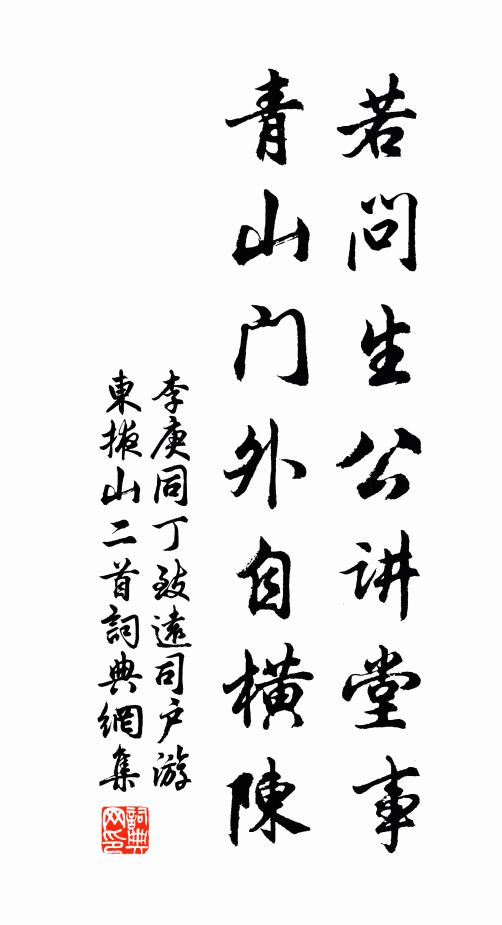 若问生公讲堂事
青山门外自横陳
李庚同丁致遠司户游
東掖山二首詞典網集
詞典网印